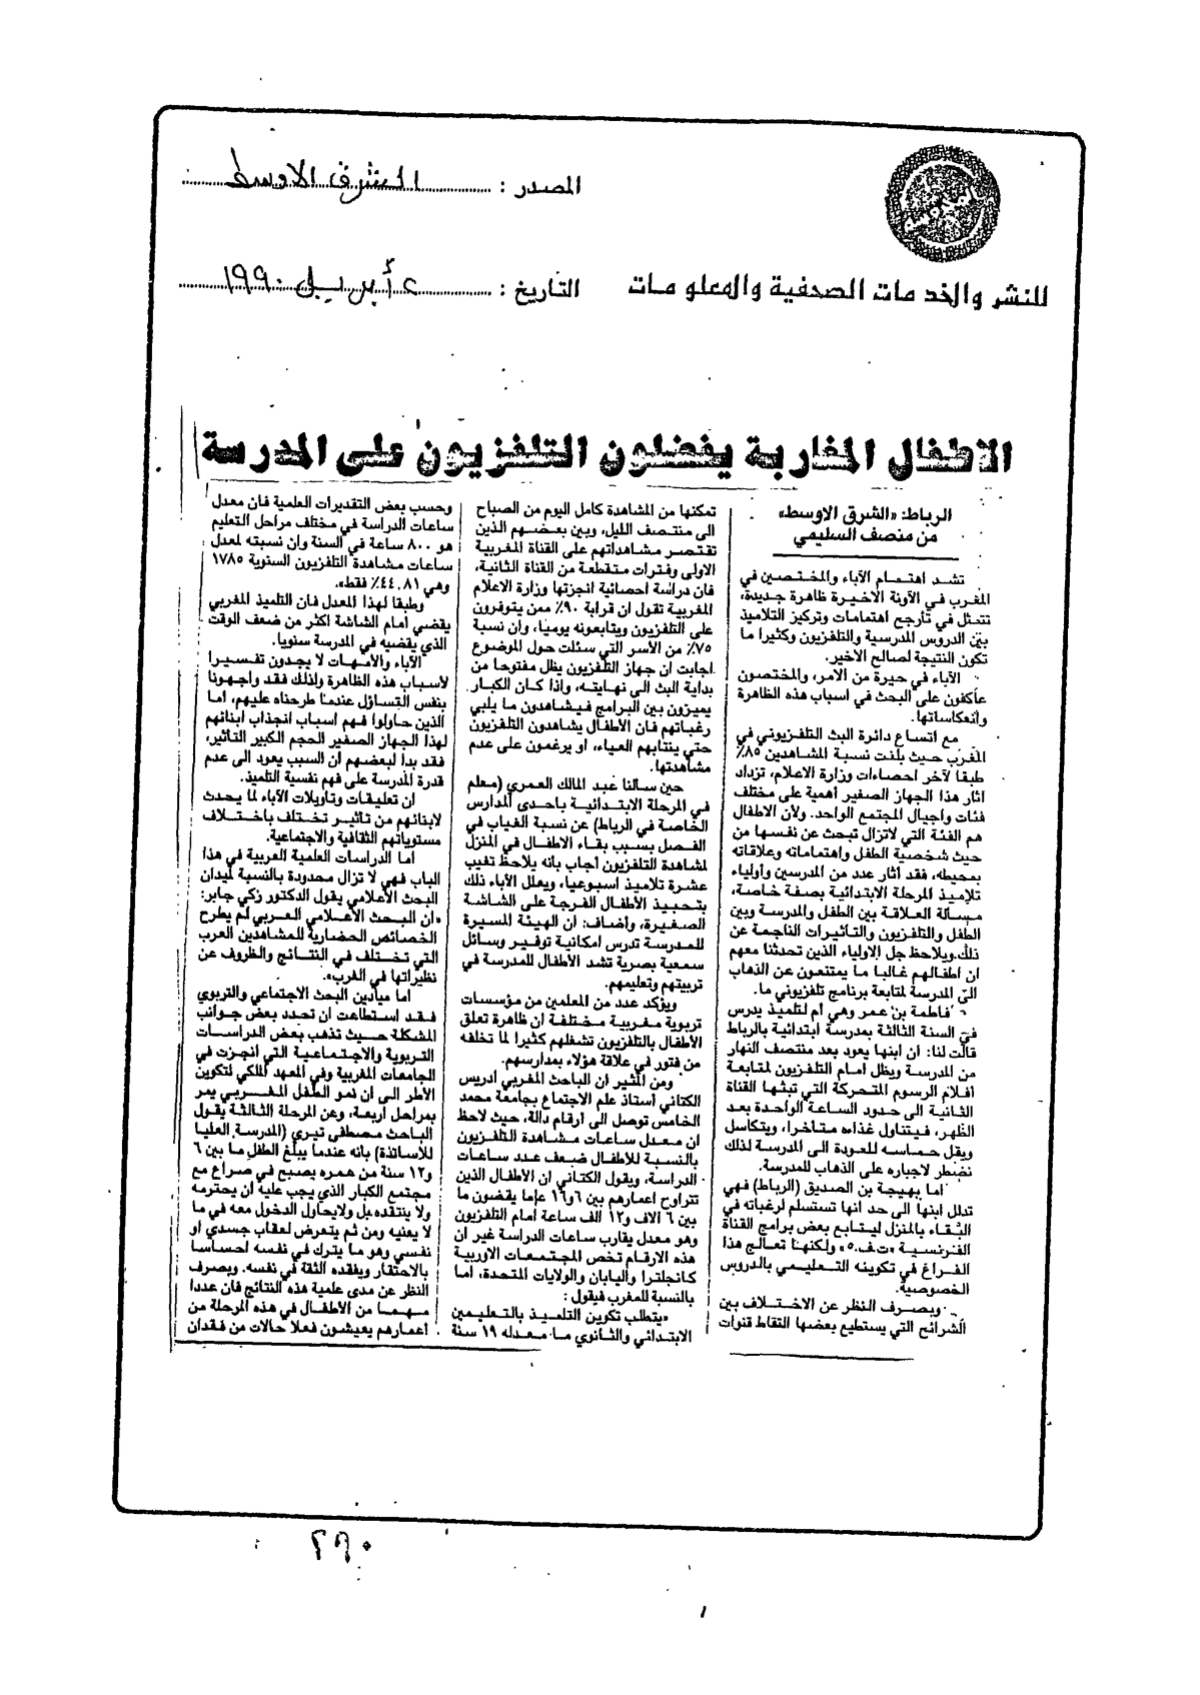 المصدر : الشرق الاوسط
للنشر والخدمات الصحفية والمعلومات
التاريخ : ٢ أبريل ١٩٩٠
الاطفال المغاربة يفضلون التلفزيون على المدرسة
الرباط: «الشرق الاوسط»
من منصف السليمي
تشد اهتمام الآباء والمختصين في
المغرب في الآونة الاخيرة ظاهرة جديدة،
تتمثل في تأرجح اهتمامات وتركيز التلاميذ
بين الدروس المدرسية والتلفزيون وكثيرا ما
تكون النتيجة لصالح الاخير.
الآباء في حيرة من الأمر، والمختصون
عاكفون على البحث في اسباب هذه الظاهرة
وانعكاساتها.
مع اتساع دائرة البث التلفزيوني في
المغرب حيث بلغت نسبة المشاهدين ٨٥٪
طبقا لآخر احصاءات وزارة الاعلام، تزداد
اثار هذا الجهاز الصغير أهمية على مختلف
فئات واجيال المجتمع الواحد. ولأن الاطفال
هم الفئة التي لاتزال تبحث عن نفسها من
حيث شخصية الطفل واهتماماته وعلاقاته
بمحيطه، فقد أثار عدد من المدرسين وأولياء
تلاميذ المرحلة الابتدائية بصفة خاصة،
مسألة العلاقة بين الطفل والمدرسة وبين
الطفل والتلفزيون والتأثيرات الناجمة عن
ذلك.ويلاحظ جل الاولياء الذين تحدثنا معهم
ان اطفالهم غالبا ما يمتنعون عن الذهاب
الى المدرسة لمتابعة برنامج تلفزيوني ما.
فاطمة بن عمر وهي أم لتلميذ يدرس
في السنة الثالثة بمدرسة ابتدائية بالرباط
قالت لنا: ان ابنها يعود بعد منتصف النهار
من المدرسة ويظل أمام التلفزيون لمتابعة
أفلام الرسوم المتحركة التي تبثها القناة
الثانية الى حدود الساعة الواحدة بعد
الظهر، فيتناول غذاءه متأخرا، ويتكاسل
ويقل حماسه للعودة الى المدرسة لذلك
نضطر لاجباره على الذهاب للمدرسة.
اما بهيجة بن الصديق (الرباط) فهي
تدلل ابنها الى حد انها تستسلم لرغباته في
البقاء بالمنزل ليتابع بعض برامج القناة
الفرنسية «ت.ف.٥» ولكنها تعالج هذا
الفراغ في تكوينه التعليمي بالدروس
الخصوصية.
وبصرف النظر عن الاختلاف بين
الشرائح التي يستطيع بعضها التقاط قنوات
تمكنها من المشاهدة كامل اليوم من الصباح
الى منتصف الليل، وبين بعضهم الذين
تقتصر مشاهداتهم على القناة المغربية
الاولى وفترات متقطعة من القناة الثانية،
فان دراسة احصائية انجزتها وزارة الاعلام
المغربية تقول ان قرابة ٩٠٪ ممن يتوفرون
على التلفزيون ويتابعونه يوميا، وان نسبة
٧٥٪ من الأسر التي سئلت حول الموضوع
اجابت ان جهاز التلفزيون يظل مفتوحا من
بداية البث الى نهايته، واذا كان الكبار
يميزون بين البرامج فيشاهدون ما يلبي
رغباتهم فان الأطفال يشاهدون التلفزيون
حتى ينتابهم العياء، او يرغمون على عدم
مشاهدتها.
حين سالنا عبد المالك العمري (معلم
في المرحلة الابتدائية باحدى المدارس
الخاصة في الرباط) عن نسبة الغياب في
الفصل بسبب بقاء الاطفال في المنزل
لمشاهدة التلفزيون أجاب بانه يلاحظ تغيب
عشرة تلاميذ اسبوعيا، ويعلل الآباء ذلك
بتحبيذ الأطفال الفرجة على الشاشة
الصغيرة، واضاف: ان الهيئة المسيرة
للمدرسة تدرس امكانية توفير وسائل
سمعية بصرية تشد الأطفال للمدرسة في
تربيتهم وتعليمهم.
ويؤكد عدد من المعلمين من مؤسسات
تربوية مغربية مختلفة ان ظاهرة تعلق
الأطفال بالتلفزيون تشغلهم كثيرا لما تخلفه
من فتور في علاقة هؤلاء بمدارسهم.
ومن المثير ان الباحث المغربي ادريس
الكتاني أستاذ علم الاجتماع بجامعة محمد
الخامس توصل الى أرقام دالة، حيث لاحظ
ان معدل ساعات مشاهدة التلفزيون
بالنسبة للأطفال ضعف عدد ساعات
الدراسة، ويقول الكتاني ان الأطفال الذين
تتراوح اعمارهم بين ٦و١٦ عاما يقضون ما
بين ٦ الاف و١٢ الف ساعة امام التلفزيون
وهو معدل يقارب ساعات الدراسة غير ان
هذه الارقام تخص المجتمعات الاوربية
كانجلترا واليابان والولايات المتحدة، أما
بالنسبة للمغرب فيقول :
«يتطلب تكوين التلميذ بالتعليمين
الابتدائي والثانوي ما معدله ١٩ سنة
وحسب بعض التقديرات العلمية فان معدل
ساعات الدراسة في مختلف مراحل التعليم
هو ٨٠٠ ساعة في السنة وان نسبته لمعدل
ساعات مشاهدة التلفزيون السنوية ١٧٨٥
وهي ٤٤.٨١٪ فقط».
وطبقا لهذا المعدل فان التلميذ المغربي
يقضي أمام الشاشة اكثر من ضعف الوقت
الذي يقضيه في المدرسة سنويا.
الآباء والأمهات لا يجدون تفسيرا
لأسباب هذه الظاهرة ولذلك فقد واجهونا
بنفس التساؤل عندما طرحناه عليهم، اما
الذين حاولوا فهم اسباب انجذاب ابنائهم
لهذا الجهاز الصغير الحجم الكبير التأثير،
فقد بدا لبعضهم ان السبب يعود الى عدم
قدرة المدرسة على فهم نفسية التلميذ.
ان تعليقات وتاويلات الآباء لما يحدث
لابنائهم من تاثير تختلف باختلاف
مستوياتهم الثقافية والاجتماعية.
اما الدراسات العلمية العربية في هذا
الباب فهي لا تزال محدودة بالنسبة لميدان
البحث الاعلامي يقول الدكتور زكي جابر:
«ان البحث الاعلامي العربي لم يطرح
الخصائص الحضارية للمشاهدين العرب
التي تختلف في النتائج والظروف عن
نظيراتها في الغرب».
اما ميادين البحث الاجتماعي والتربوي
فقد استطاعت ان تحدد بعض جوانب
المشكلة حيث تذهب بعض الدراسات
التربوية والاجتماعية التي أنجزت في
الجامعات المغربية وفي المعهد الملكي لتكوين
الأطر الى ان نمو الطفل المغربي يمر
بمراحل أربعة، وعن المرحلة الثالثة يقول
الباحث مصطفى تيري (المدرسة العليا
للأساتذة) بانه عندما يبلغ الطفل ما بين ٦
و١٢ سنة من عمره يصبح في صراع مع
مجتمع الكبار الذي يجب عليه ان يحترمه
ولا ينتقده بل ولايحاول الدخول معه في ما
لا يعنيه ومن ثم يتعرض لعقاب جسدي او
نفسي وهو ما يترك في نفسه احساسا
بالاحتقار ويفقده الثقة في نفسه. وبصرف
النظر عن مدى علمية هذه النتائج فان عددا
مهما من الأطفال في هذه المرحلة من
اعمارهم يعيشون فعلا حالات من فقدان
٢٩٠